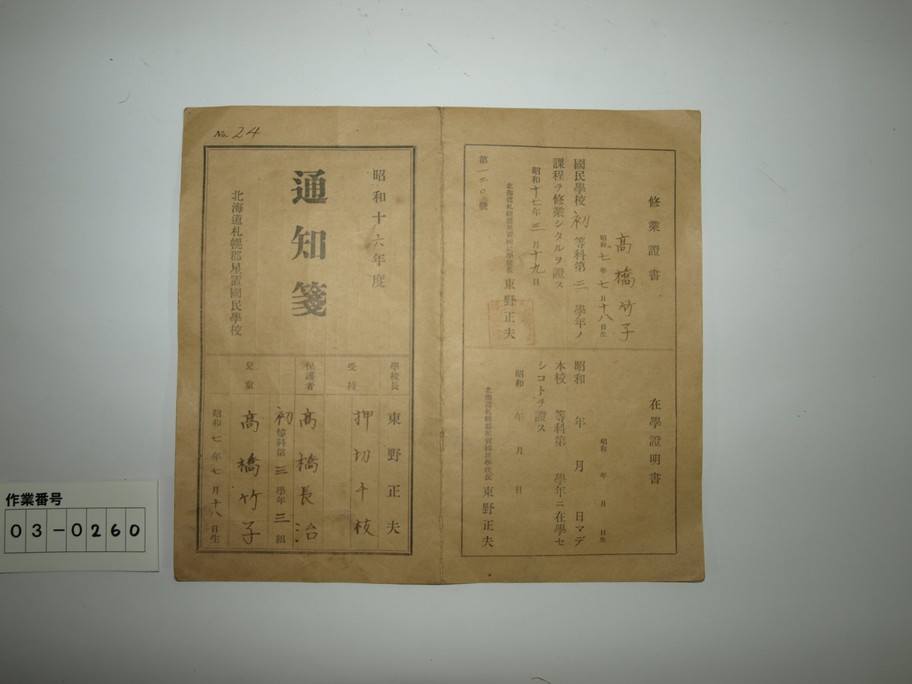 修業證書
高橋竹子
昭和七年七月十八日生
國民學校初等科第三學年ノ
課程ヲ修業シタルヲ證ス
昭和十七年三月十九日
北海道札幌郡星置國民學校長 東野正夫
第一二〇號
在學證明書
昭和 年 月 日生
昭和 年 月 日マデ
本校 等科第 學年ニ在學セ
シコトヲ證ス
昭和 年 月 日
北海道札幌郡星置國民學校長 東野正夫
No. 24
昭和十六年度
通知箋
北海道札幌郡星置國民學校
學校長 東野正夫
受持 押切千枝
保護者 高橋長治
初等科第三學年三組
兒童 高橋竹子
昭和七年七月十八日生
作業番号
03-0260